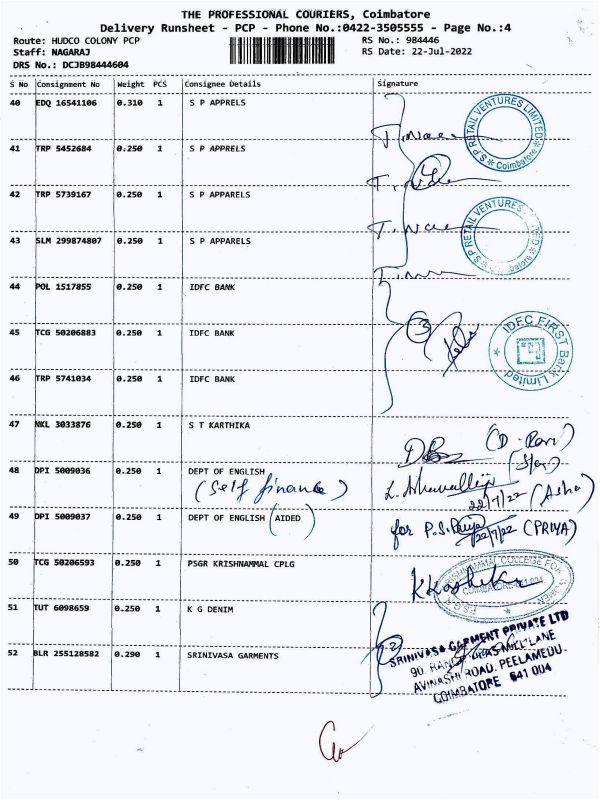 THE PROFESSIONAL COURIERS, Coimbatore
Delivery Runsheet - PCP - Phone No.:0422-3505555 - Page No.:4
Route: HUDCO COLONY PCP RS No.: 984446
Staff: NAGARAJ RS Date: 22-Jul-2022
DRS No.: DCJB98444604
S No Consignment No Weight PCS Consignee Details Signature
40 EDQ 16541106 0.310 1 S P APPRELS
S.P RETAIL VENTURES LIMITED
Coimbatore
41 TRP 5452684 0.250 1 S P APPRELS
4
42 TRP 5739167 0.250 1 S P APPARELS
S.P RETAIL VENTURES
43 SLM 299874807 0.250 1 S P APPARELS
44 POL 1517855 0.250 1 IDFC BANK
3
IDFC FIRST Bank Limited
45 TCG 50206883 0.250 1 IDFC BANK
46 TRP 5741034 0.250 1 IDFC BANK
47 NKL 3033876 0.250 1 S T KARTHIKA
48 DPI 5009036 0.250 1 DEPT OF ENGLISH
(Self finance)
22/7/22 (Asha)
49 DPI 5009037 0.250 1 DEPT OF ENGLISH (AIDED)
for P.S. Priya 22/7/22 (PRIYA)
50 TCG 50206593 0.250 1 PSGR KRISHNAMMAL CPLG
51 TUT 6098659 0.250 1 K G DENIM
2
52 BLR 255128582 0.290 1 SRINIVASA GARMENTS
SRINIVASA GARMENT PRIVATE LTD
90, MILL LANE
AVINASHI ROAD, PEELAMEDU.
COIMBATORE 641 004